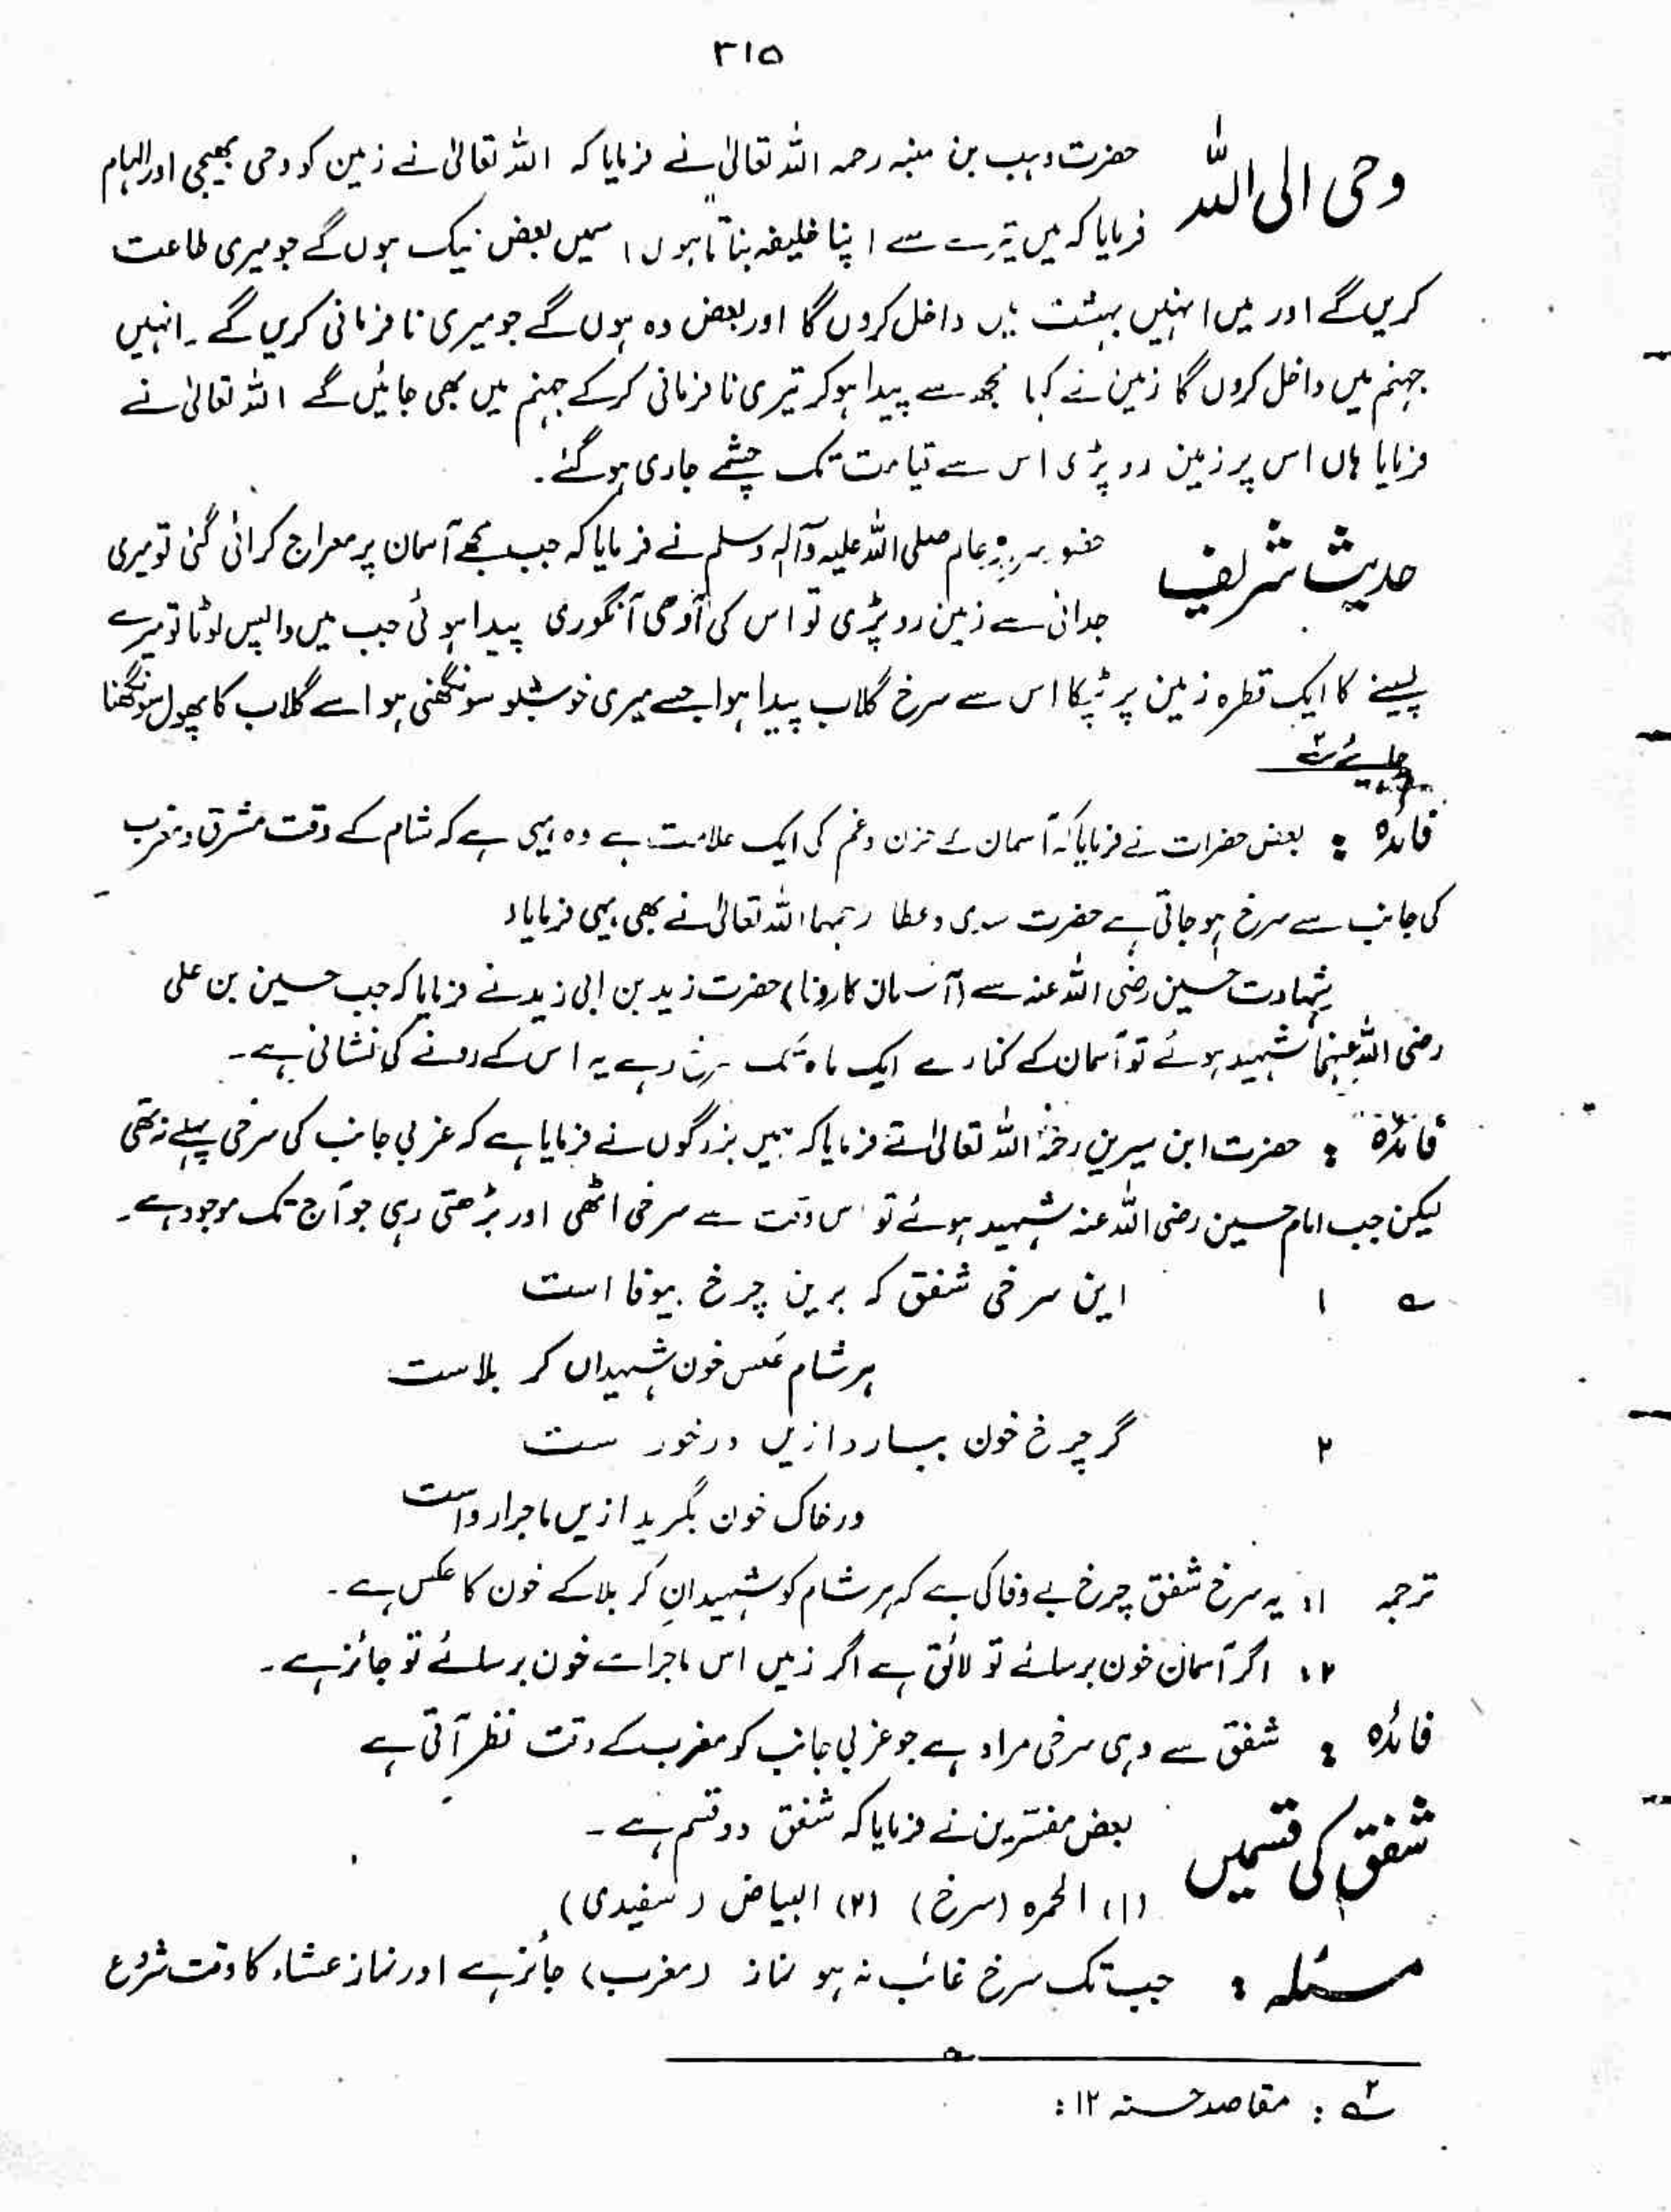 ۳۱۵
وحی الی اللہ
حضرت وہب بن منبہ رحمہ اللہ تعالیٰ نے فرمایا کہ اللہ تعالیٰ نے زمین کو وحی بھیجی اور الہام
فرمایا کہ میں تیرے سے اپنا خلیفہ بناتا ہوں اسمیں بعض نیک ہوں گے جو میری طاعت
کریں گے اور میں انہیں بہشت میں داخل کروں گا اور بعض وہ ہوں گے جو میری نافرمانی کریں گے ۔ انہیں
جہنم میں داخل کروں گا زمین نے کہا مجھ سے پیدا ہو کر تیری نافرمانی کر کے جہنم میں بھی جائیں گے اللہ تعالیٰ نے
فرمایا ہاں اس پر زمین رو پڑی اس سے قیامت تک چشمے جاری ہو گئے ۔
حدیث شریف
حضور سرور عالم صلی اللہ علیہ وآلہ وسلم نے فرمایا کہ جب مجھے آسمان پر معراج کرائی گئی تو میری
جدائی سے زمین رو پڑی تو اس کی آنگوری پیدا ہوئی جب میں واپس لوٹا تو میرے
پسینے کا ایک قطرہ زمین پر ٹپکا اس سے سرخ گلاب پیدا ہوا جسے میری خوشبو سونگھنی ہو اسے گلاب کا پھول سونگھنا
چاہیے ۲؎
فائدہ : بعض حضرات نے فرمایا کہ آسمان کے حزن و غم کی ایک علامت ہے وہ یہی ہے کہ شام کے وقت مشرق و مغرب
کی جانب سے سرخ ہو جاتی ہے حضرت سدی و عطا رحمہما اللہ تعالیٰ نے بھی یہی فرمایا
شہادت حسین رضی اللہ عنہ سے (آسمان کا رونا) حضرت زید بن ابی زید نے فرمایا کہ جب حسین بن علی
رضی اللہ عنہما شہید ہوئے تو آسمان کے کنارے ایک ماہ تک سرخ رہے یہ اس کے رونے کی نشانی ہے ۔
فائدہ : حضرت ابن سیرین رحمۃ اللہ تعالیٰ نے فرمایا کہ ہمیں بزرگوں نے فرمایا ہے کہ غربی جانب کی سرخی پہلے نہ تھی
لیکن جب امام حسین رضی اللہ عنہ شہید ہوئے تو اس وقت سے سرخی اٹھی اور بڑھتی رہی جو آج تک موجود ہے ۔
؎ ۱ این سرخی شفق کہ برین چرخ بیوفا است
ہر شام عکس خون شہیداں کربلاست
۲ گر چرخ خون ببارد ازیں درخور ست
ور خاک خون بگرید ازیں ماجرا رواست
ترجمہ ۱: یہ سرخ شفق چرخ بے وفا کی ہے کہ ہر شام کو شہیدانِ کربلا کے خون کا عکس ہے ۔
۲: اگر آسمان خون برسائے تو لائق ہے اگر زمیں اس ماجرا سے خون برسائے تو جائز ہے ۔
فائدہ : شفق سے وہی سرخی مراد ہے جو غربی جانب کو مغرب کے وقت نظر آتی ہے
شفق کی قسمیں
بعض مفسّرین نے فرمایا کہ شفق دو قسم ہے ۔
(۱) الحمرہ (سرخ) (۲) البیاض (سفیدی)
مسئلہ : جب تک سرخ غائب نہ ہو نماز (مغرب) جائز ہے اور نماز عشاء کا وقت شروع
۲؎ : مقاصد حسنہ ۱۲ :